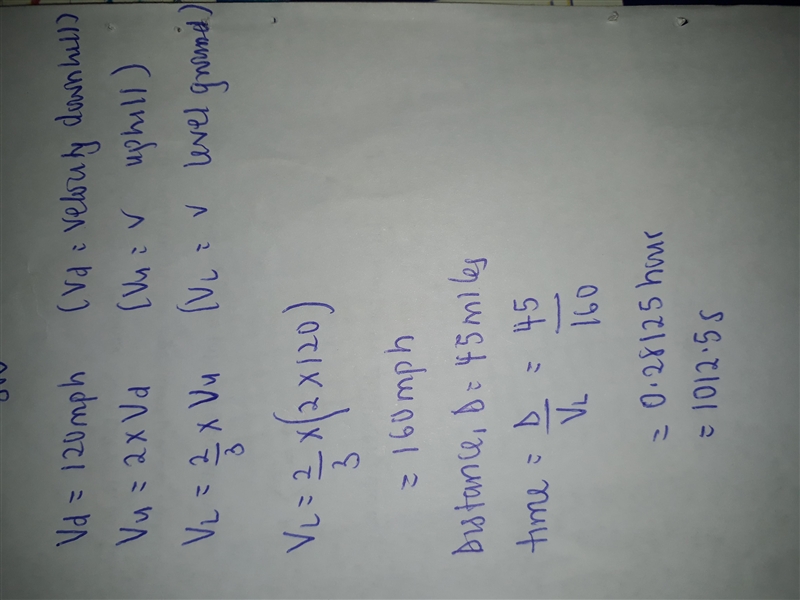 Vd = 120mph (Vd = velocity downhill)
Vu = 2 x Vd (Vu = v uphill)
VL = 2/3 x Vu (VL = v level ground)
VL = 2/3 x (2 x 120)
= 160mph
Distance, D = 45 miles
time = D/VL = 45/160
= 0.28125 hour
= 1012.5s